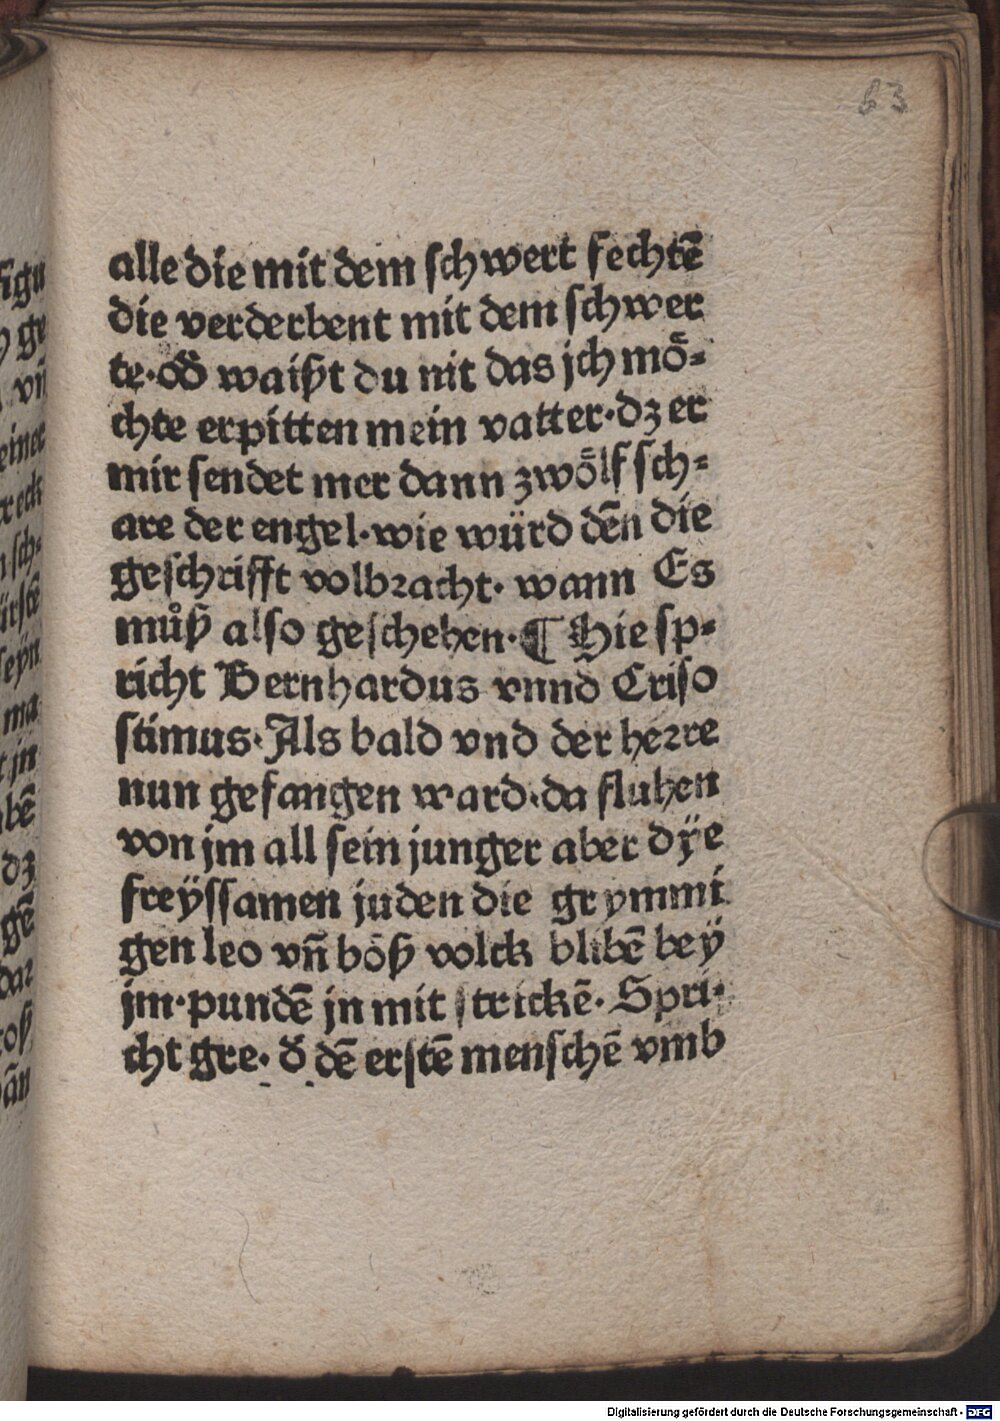 63
alle die mit dem schwert fechtē
die verderbent mit dem schwer
te·od̄ waißt du nit das jch mö-
chte erpitten mein vatter·dz er
mir sendet mer dann zwölf sch-
are der engel·wie würd dēn die
geschrifft volbracht· wann Es
můß also geschehen·¶ Hie sp-
richt Bernhardus vnnd Criso
stimus·Als bald vnd der herre
nun gefangen ward·da fluhen
von jm all sein junger aber dÿe
freÿssamen juden die grymmi
gen leo vn̄ böß volck blibē beÿ
jm·pundē jn mit strickē· Spri-
cht gre· d̄ dē erstē menschē vmb
Digitalisierung gefördert durch die Deutsche Forschungsgemeinschaft - DFG